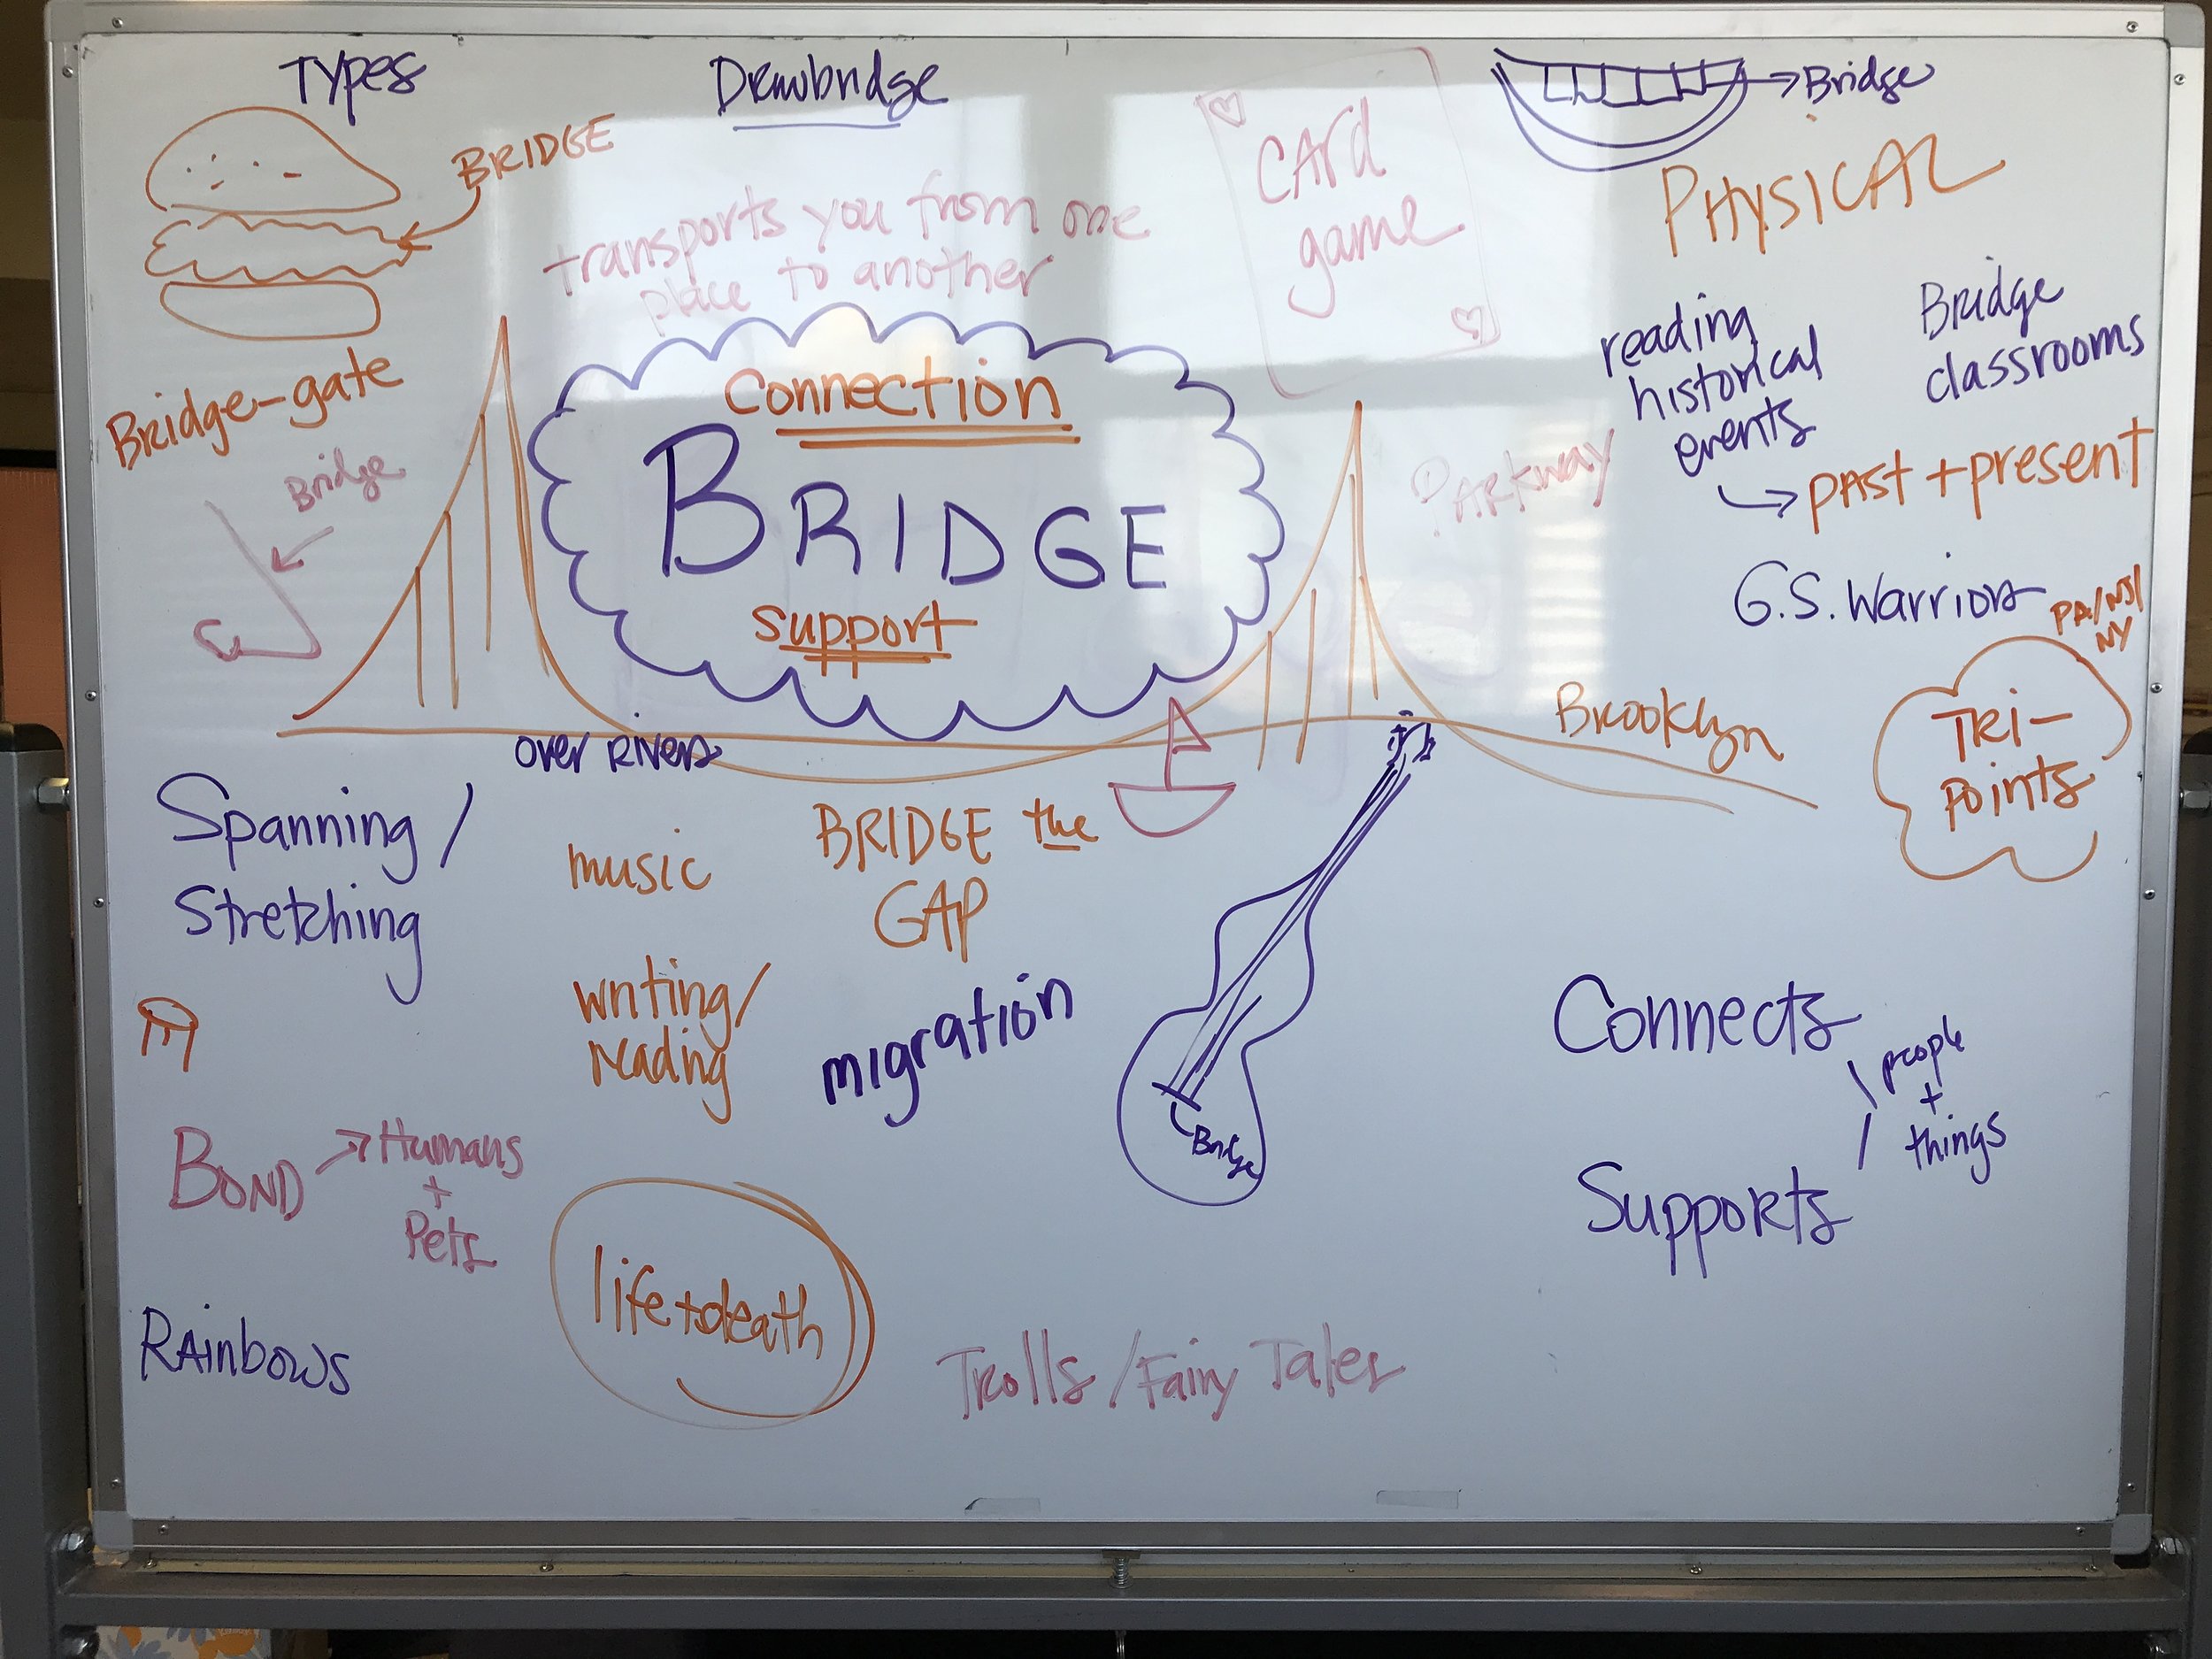 Types
Drawbridge
→Bridge
BRIDGE
CArd
game
PHYSICAL
transports you from one
place to another
reading
historical
events
Bridge
classrooms
Bridge-gate
Bridge
Connection
BRIDGE
support
PArkway
past + present
G.S. Warriors
PA/NJ/
NY
TRI-
Points
Brooklyn
over Rivers
Spanning/
Stretching
music
BRIDGE the
GAP
writing/
reading
migration
Bridge
Connects
people
+
things
Supports
BOND → Humans
+
Pets
life + death
RAinbows
Trolls / Fairy Tales